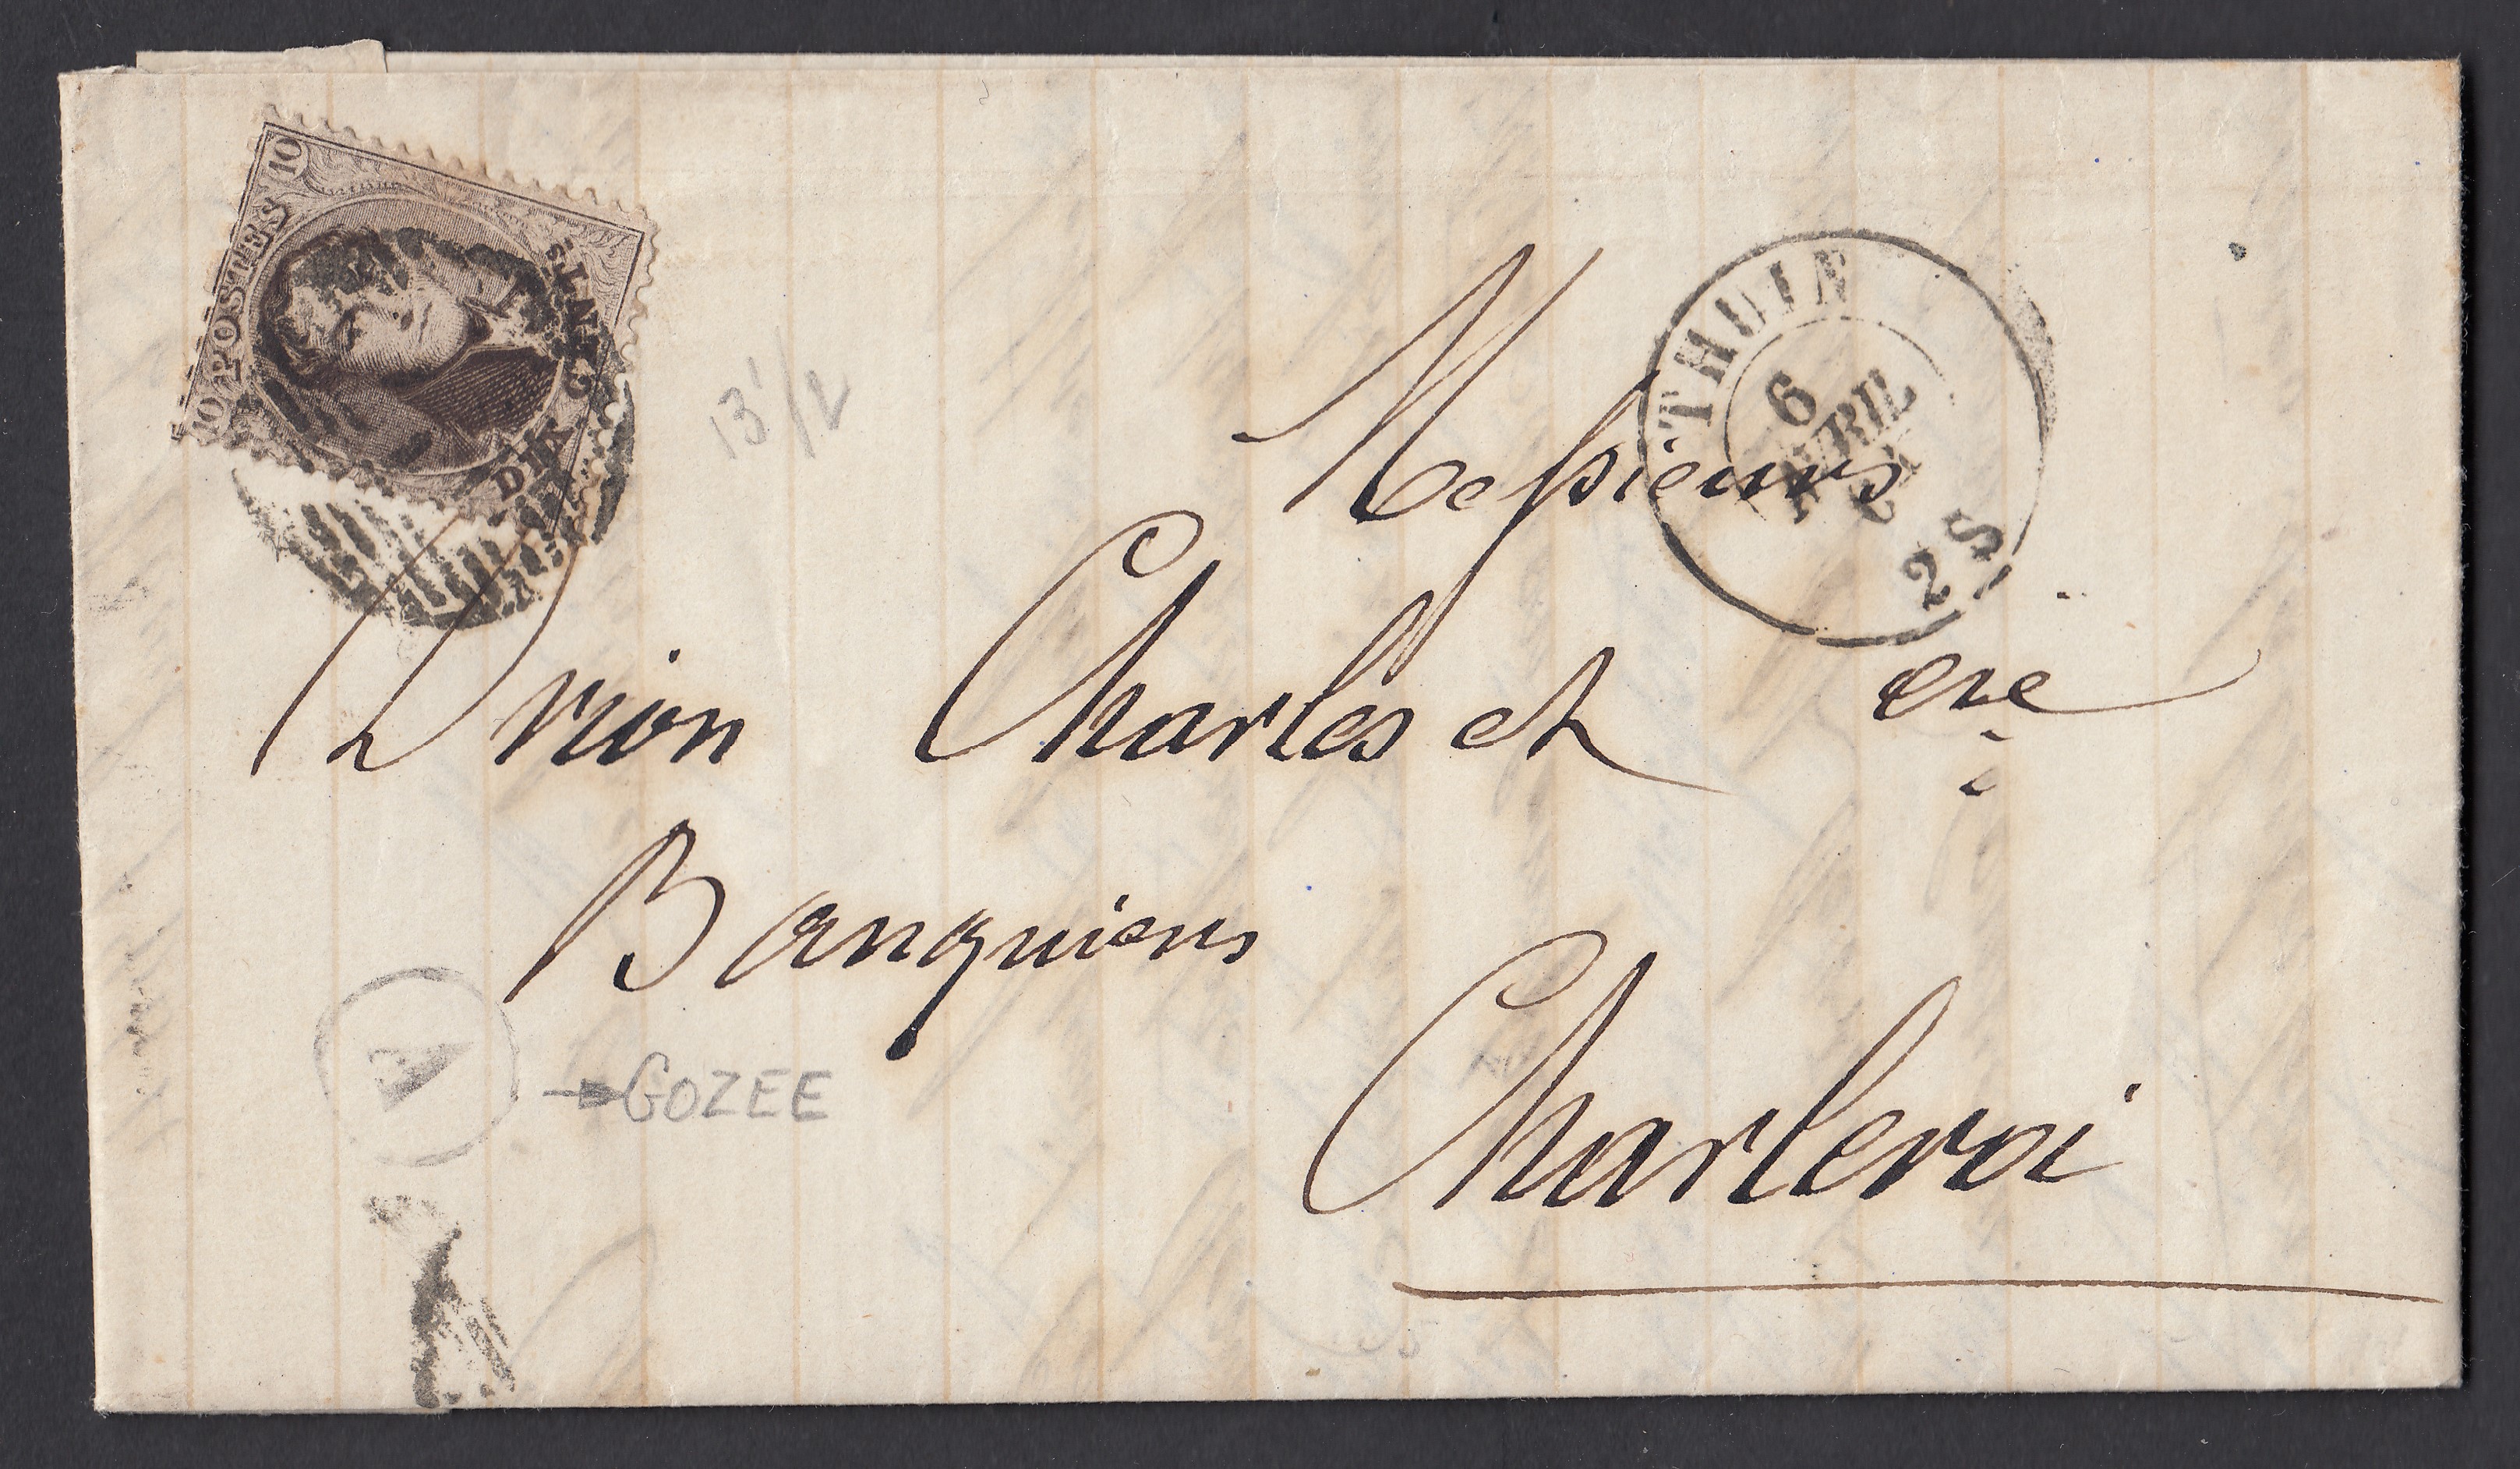 10 POSTES 10
DIX CENTS
13 1/2
THUIN
6
AVRIL
2 S
Messieurs
Drion Charles et Cie
Banquiers
A
→ GOZEE
Charleroi